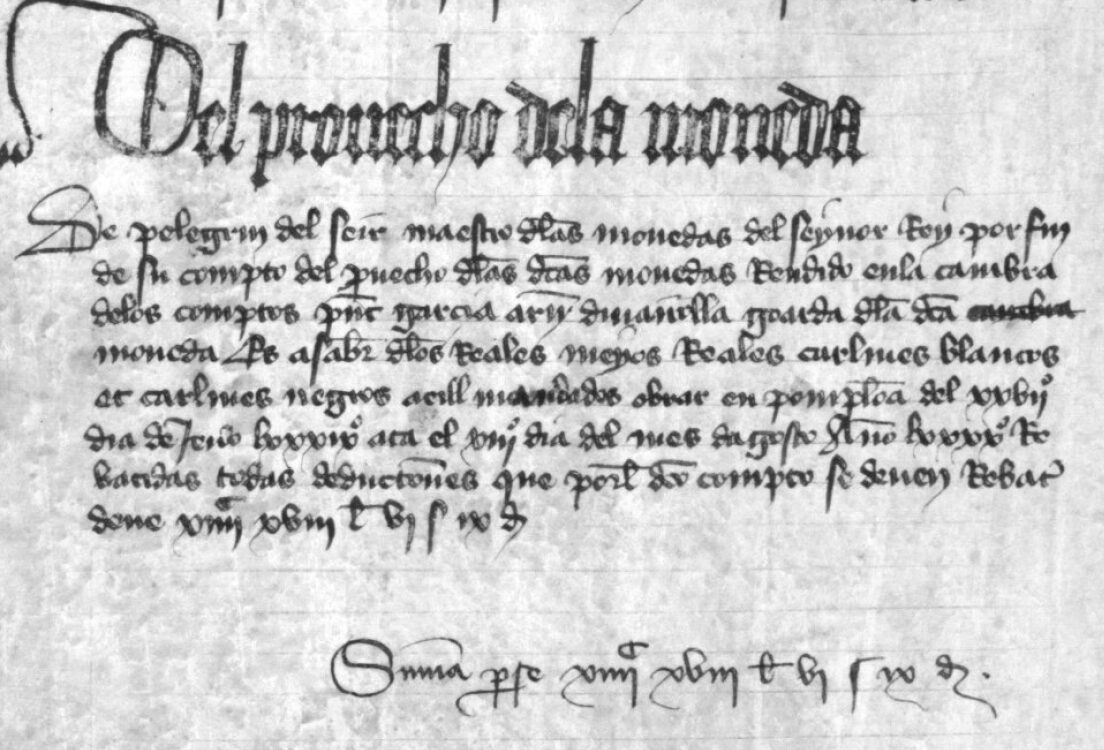 Del prouecho dela moneda
De pelegrin del seir maestro dlas monedas del seynor Rey por fin
de su compto del puecho dlas dtas monedas Rendido enla cambra
delos comptos pnt garcia dla dta cambra
moneda Es asabr dlos Reales meyos Reales carlines blancos
et carlines negros acill mandados obrar en pomplona del xxvii°
dia de Jeno lxxxix° ata el xiiii° dia del mes dagosto Anno lxxxx° Re
batidas todas deductiones que porl dco compto se deuen Rebatr
deue xiiii c xviii l vi s ix d
Suma p se xiiii c xviii l vi s ix d.